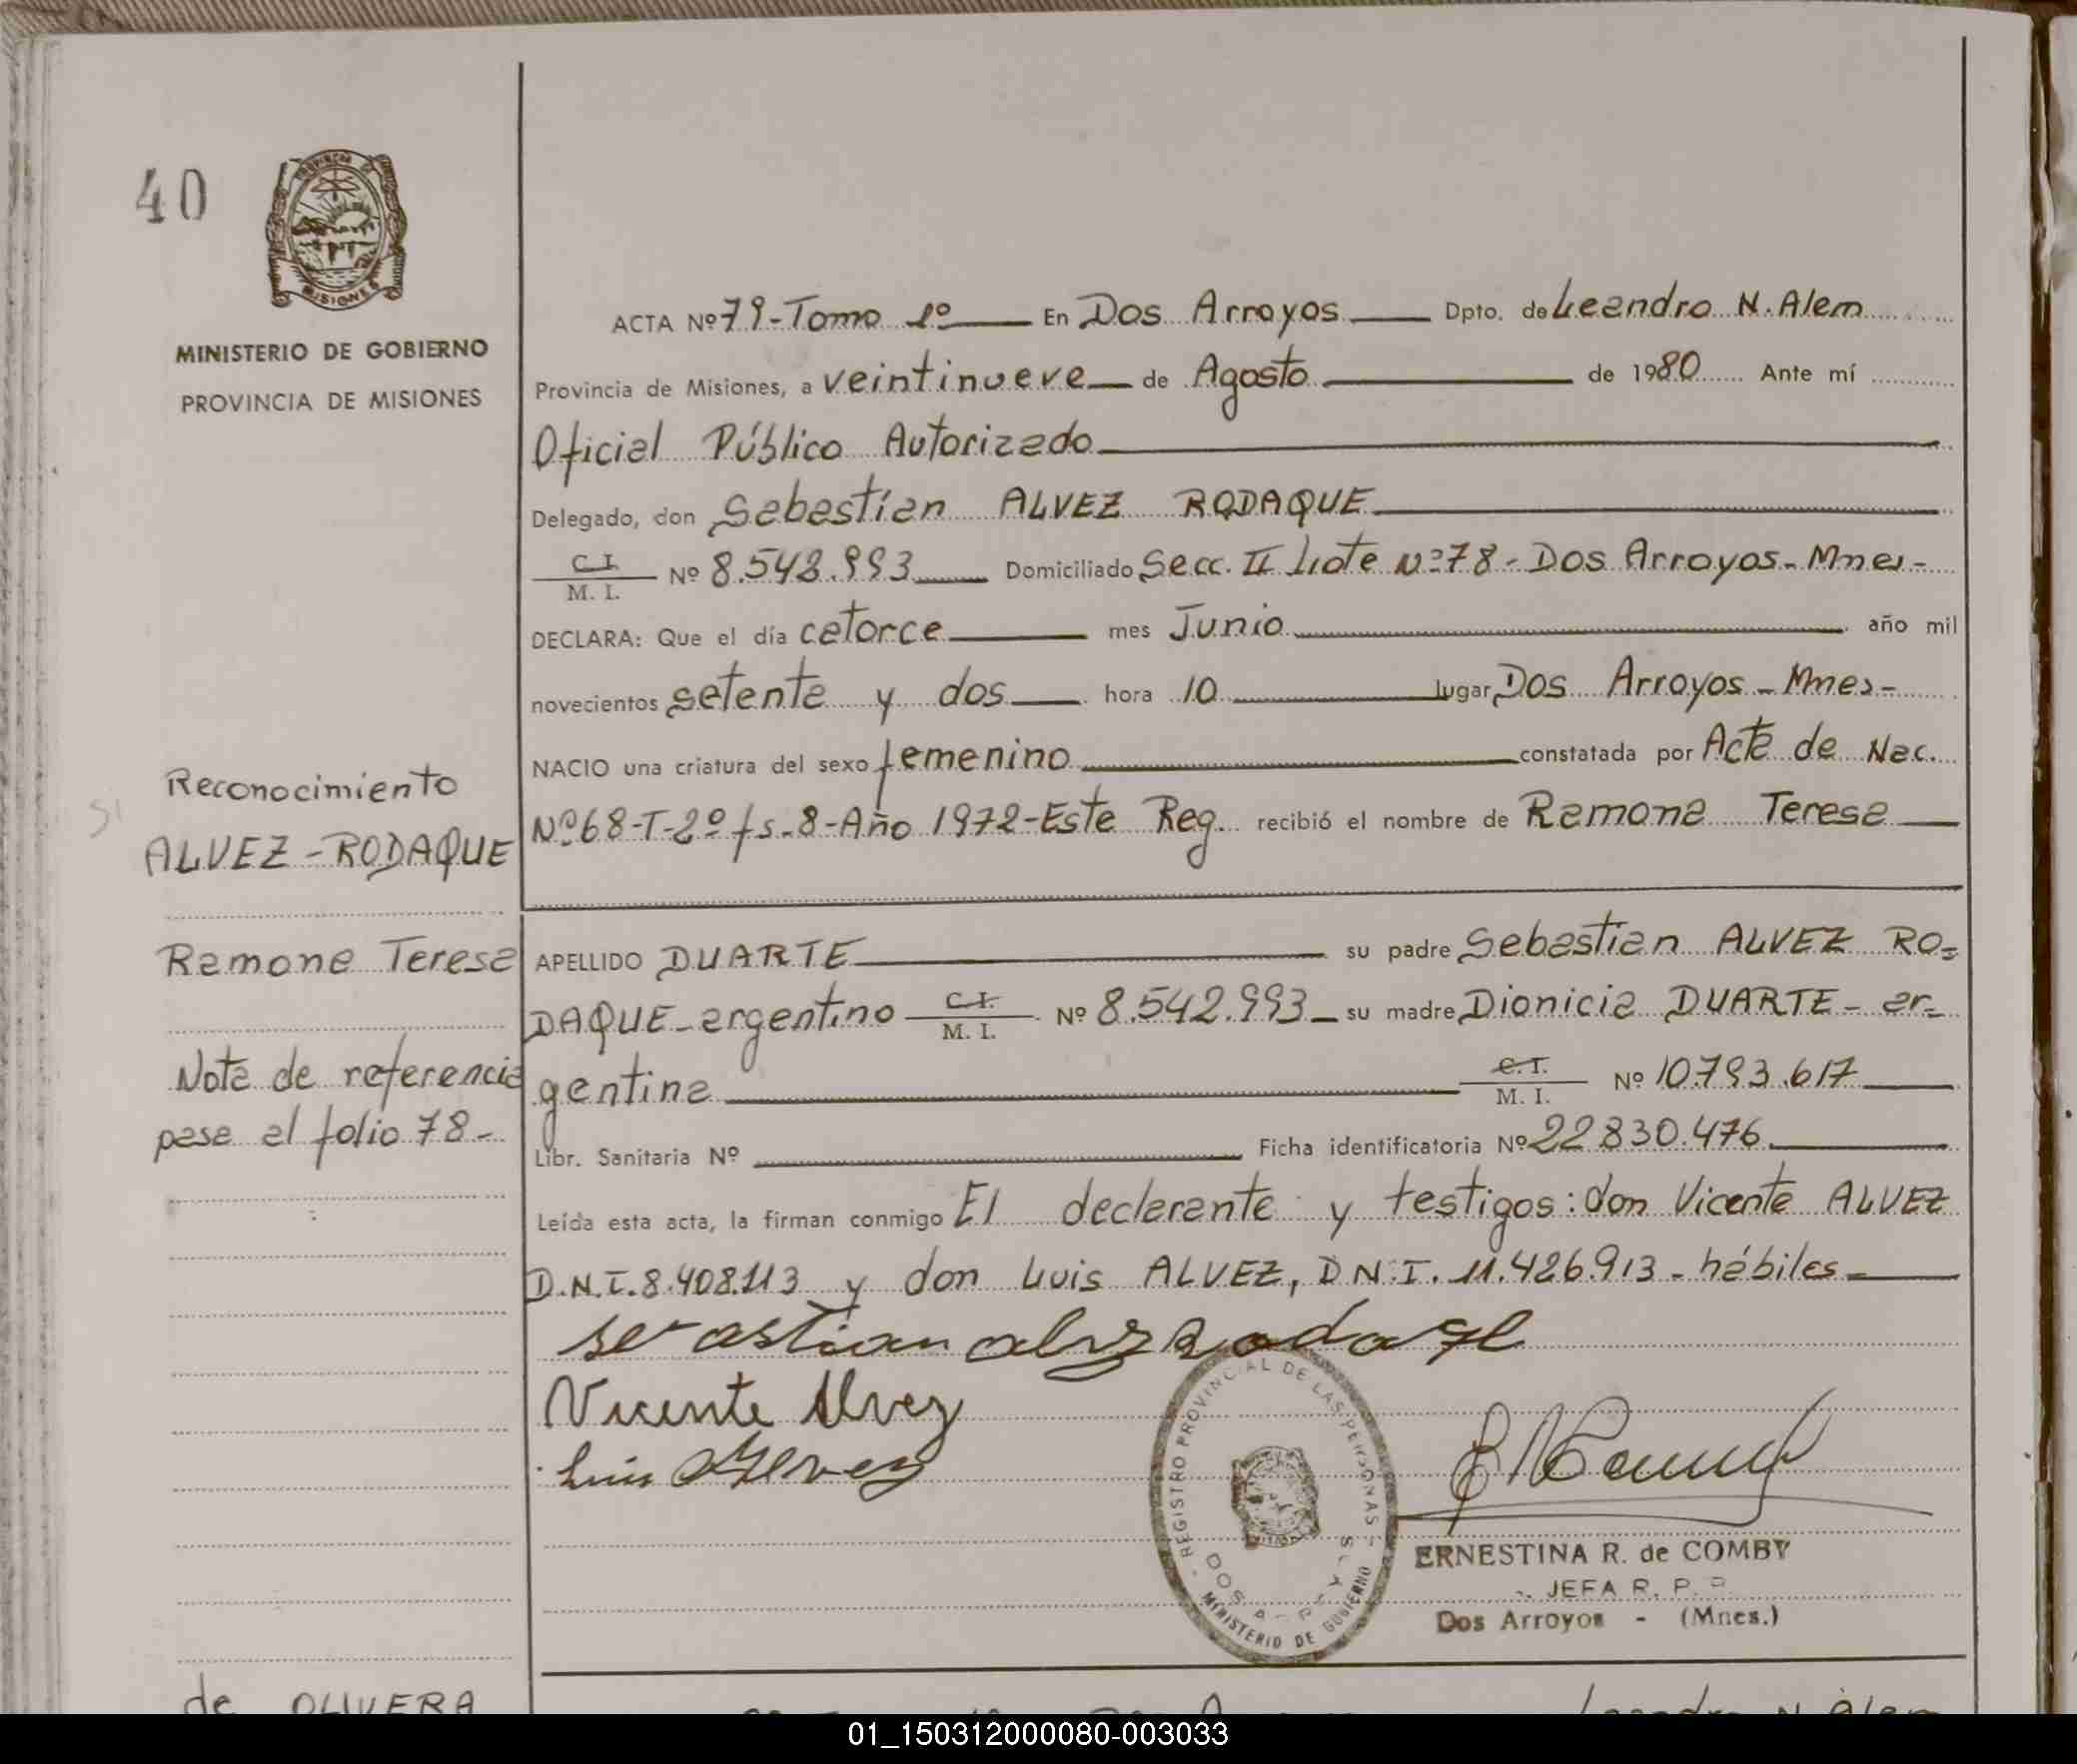 40
PROVINCIA DE
MISIONES
MINISTERIO DE GOBIERNO
PROVINCIA DE MISIONES
ACTA Nº 79-Tomo 1º En Dos Arroyos Dpto. de Leandro N. Alem
Provincia de Misiones, a veintinueve de Agosto de 1980 Ante mí
Oficial Público Autorizado
Delegado, don Sebastián ALVEZ RODAQUE
C.I.
M. I. Nº 8.542.993 Domiciliado Secc. II Lote Nº 78 - Dos Arroyos - Mnes -
DECLARA: Que el día catorce mes Junio año mil
novecientos setenta y dos hora 10 lugar Dos Arroyos - Mnes -
NACIO una criatura del sexo femenino constatada por Acta de Nac.
Nº 68-T-2º fs-8-Año 1972-Este Reg. recibió el nombre de Ramona Teresa
Reconocimiento
ALVEZ - RODAQUE
Ramona Teresa
Nota de referencia
pasa al folio 78 -
APELLIDO DUARTE su padre Sebastian ALVEZ RO=
DAQUE - argentino C.I. M. I. Nº 8.542.993 - su madre Dionicia DUARTE - ar=
gentina C.I. M. I. Nº 10.793.617
Libr. Sanitaria Nº Ficha identificatoria Nº 22.830.476
Leída esta acta, la firman conmigo El declarante y testigos: don Vicente ALVEZ
D.N.I. 8.408.113 y don Luis ALVEZ, D.N.I. 11.426.913 - hábiles -
Vicente Alvez
Luis Alvez
REGISTRO PROVINCIAL DE LAS PERSONAS
MINISTERIO DE GOBIERNO
ERNESTINA R. de COMBY
JEFA R. P. P.
Dos Arroyos - (Mnes.)
de OLIVERA
Leandro N. Alem
01_150312000080-003033